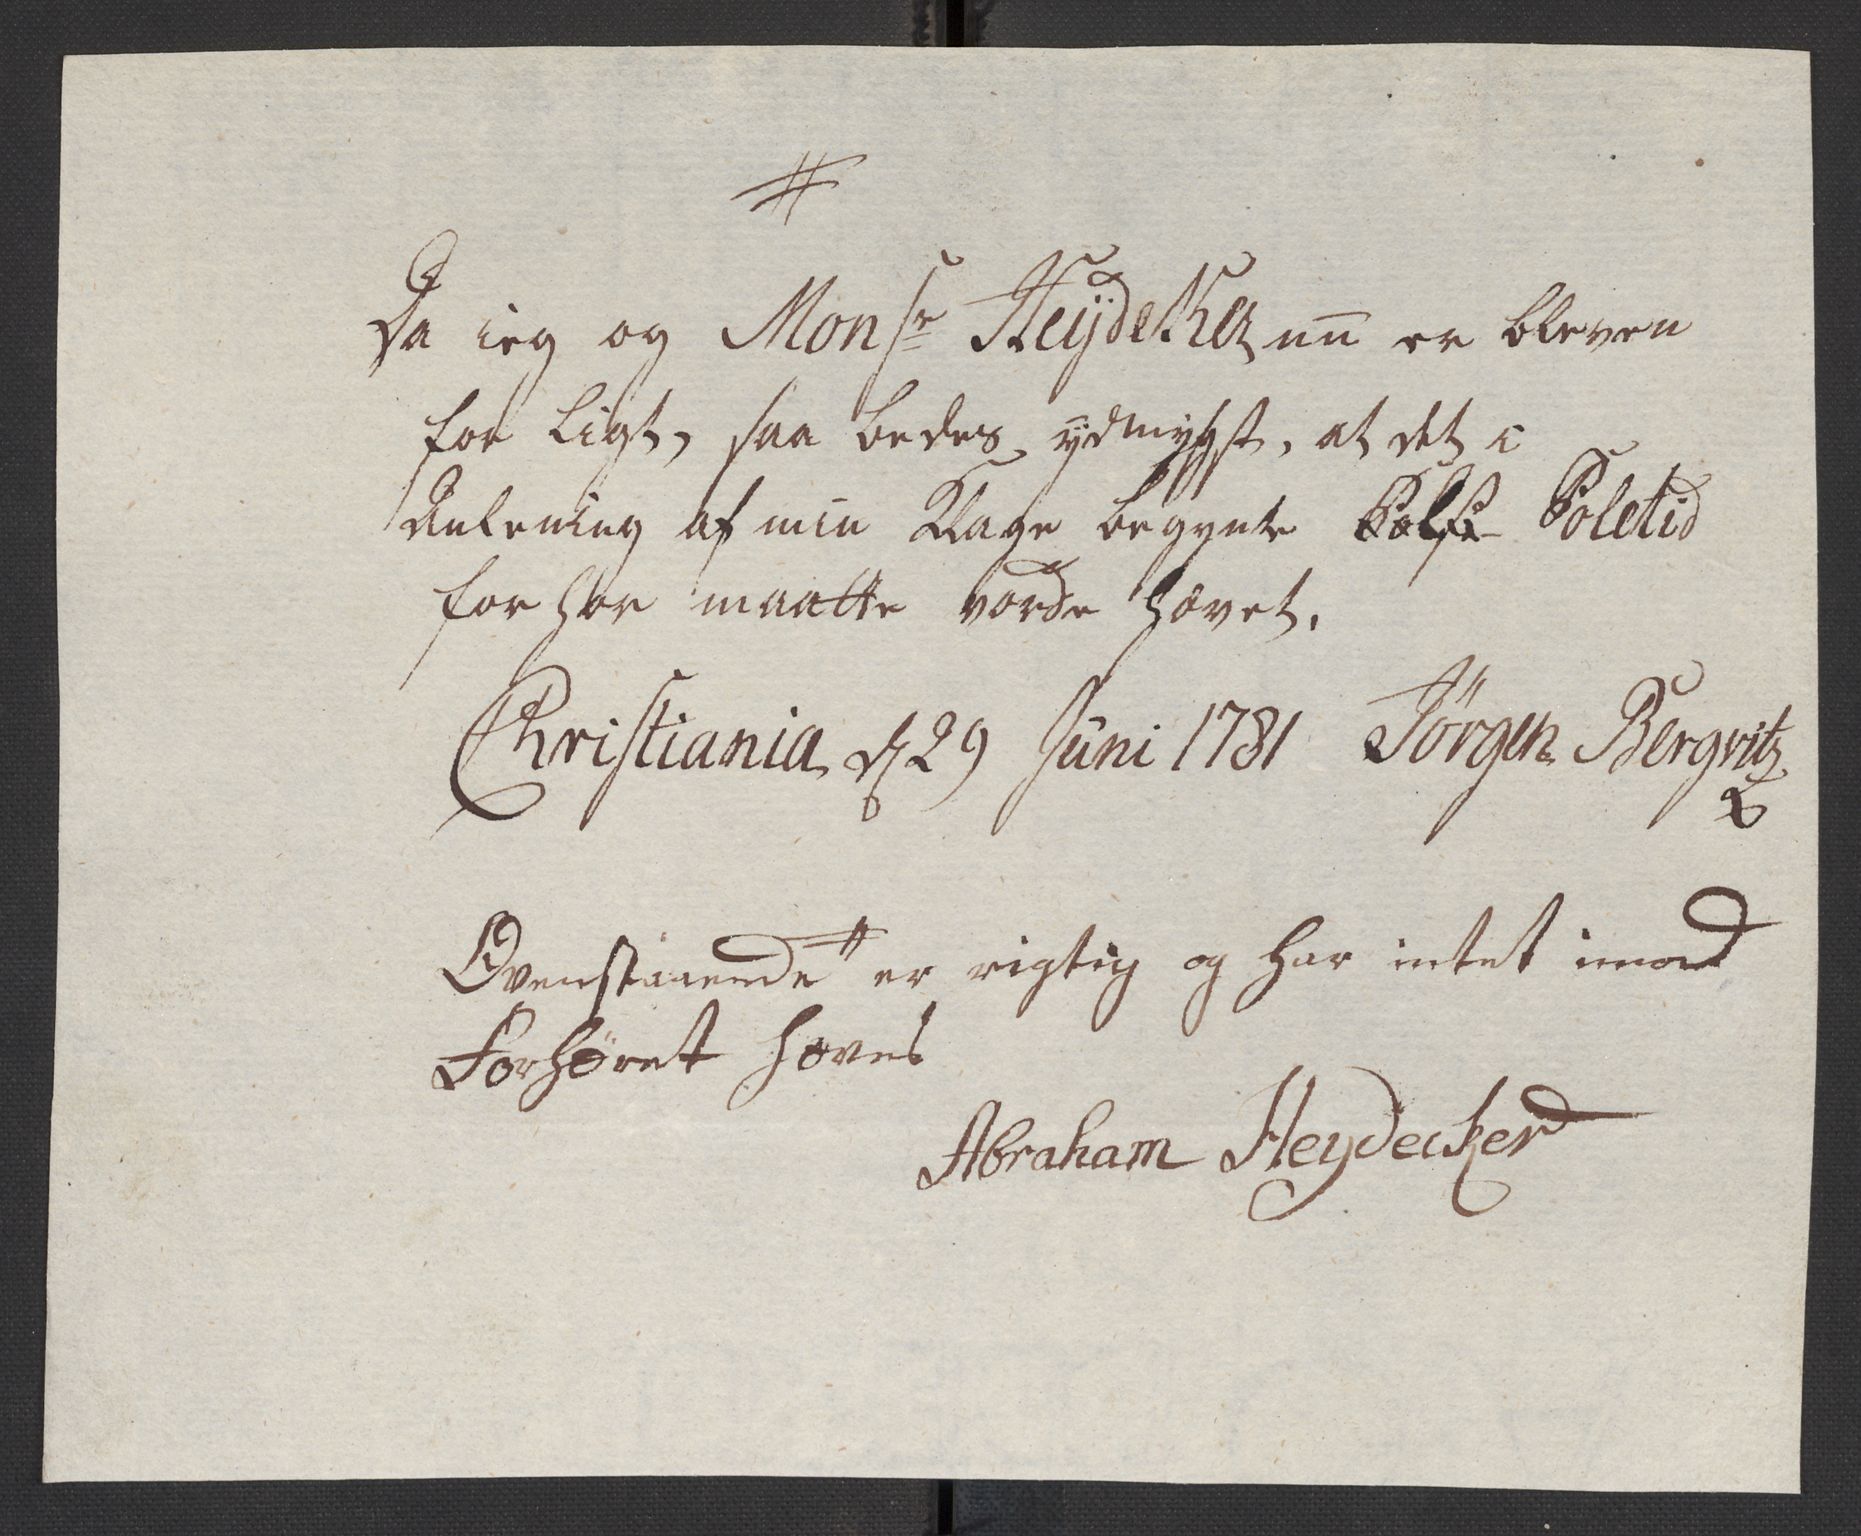 Da ieg og Monsr Heÿdeker nu er bleven
for ligt, saa bedes ÿdmygst, at det i
Anlening af min Klage begynte Poletid
for hør maatte vorde hævet.
Christiania d 29 Juni 1781 Jörgen Bergvitz
Ovenstaaende er rigtig og har intet imod
Forhöret hæves
Abraham Heydecker